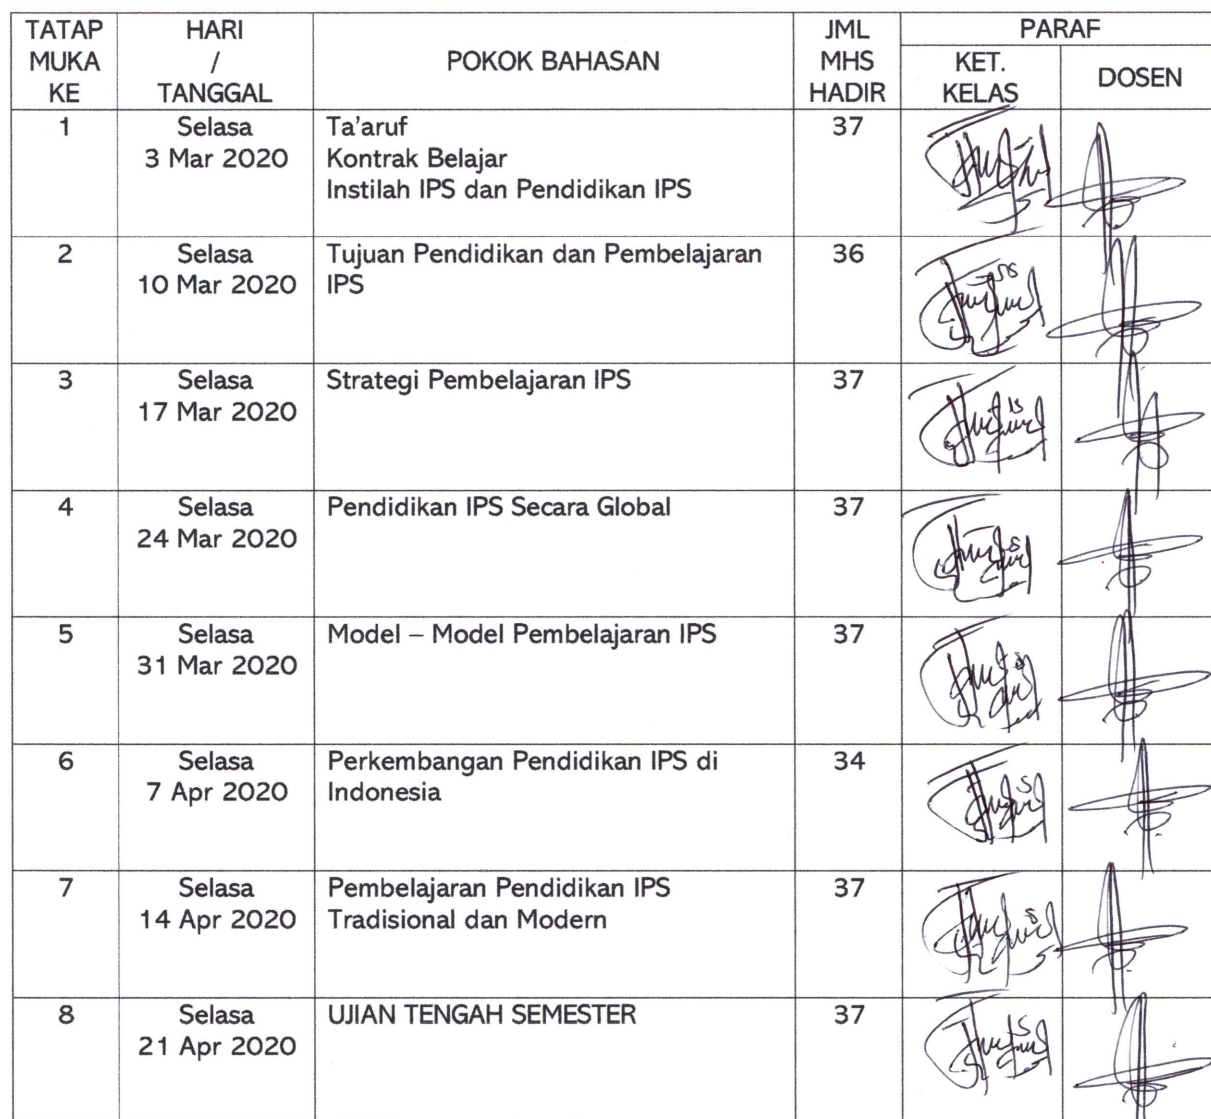 TATAP MUKA KE
HARI / TANGGAL
POKOK BAHASAN
JML MHS HADIR
PARAF
KET. KELAS
DOSEN
1
Selasa
3 Mar 2020
Ta'aruf
Kontrak Belajar
Instilah IPS dan Pendidikan IPS
37
2
Selasa
10 Mar 2020
Tujuan Pendidikan dan Pembelajaran
IPS
36
3
Selasa
17 Mar 2020
Strategi Pembelajaran IPS
37
4
Selasa
24 Mar 2020
Pendidikan IPS Secara Global
37
5
Selasa
31 Mar 2020
Model – Model Pembelajaran IPS
37
6
Selasa
7 Apr 2020
Perkembangan Pendidikan IPS di
Indonesia
34
7
Selasa
14 Apr 2020
Pembelajaran Pendidikan IPS
Tradisional dan Modern
37
8
Selasa
21 Apr 2020
UJIAN TENGAH SEMESTER
37